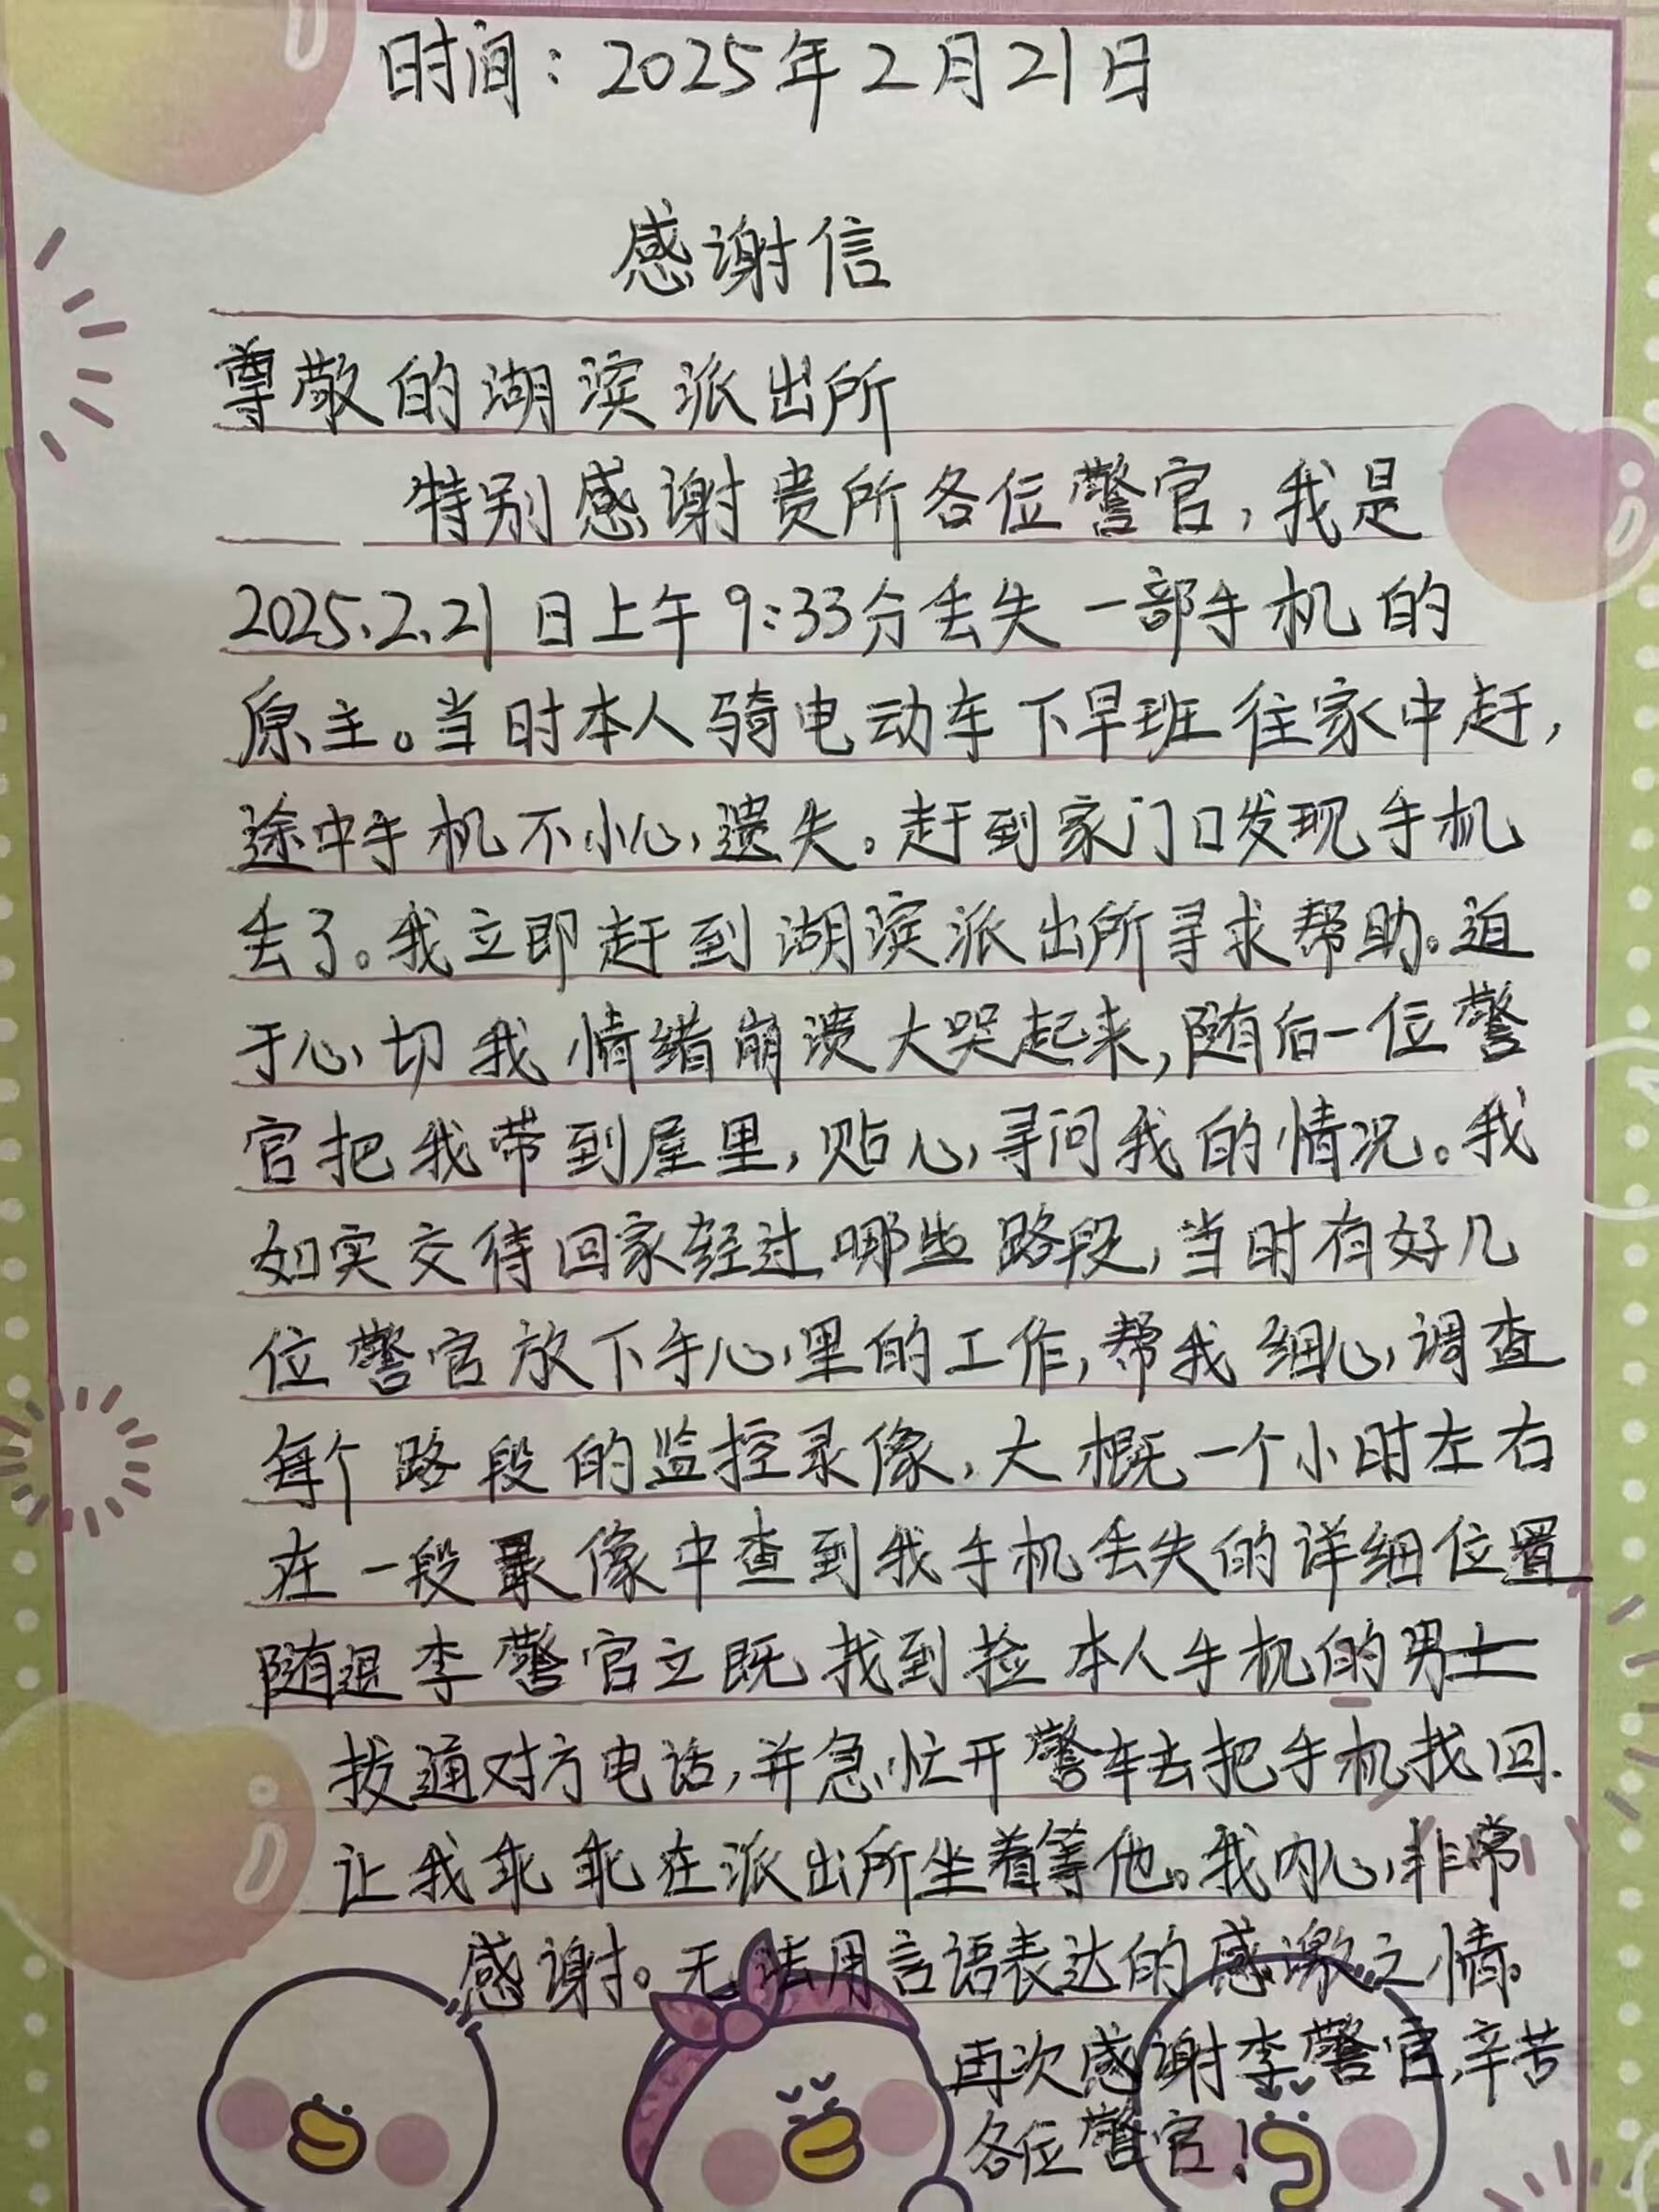 时间：2025年2月21日
感谢信
尊敬的湖滨派出所
特别感谢贵所各位警官，我是
2025.2.21日上午9:33分丢失一部手机的
原主。当时本人骑电动车下早班往家中赶，
途中手机不小心遗失。赶到家门口发现手机
丢了。我立即赶到湖滨派出所寻求帮助。迫
于心切我情绪崩溃大哭起来，随后一位警
官把我带到屋里，贴心寻问我的情况。我
如实交待回家经过哪些路段，当时有好几
位警官放下手心里的工作，帮我细心调查
每个路段的监控录像，大概一个小时左右
在一段录像中查到我手机丢失的详细位置
随迅李警官立既找到捡本人手机的男士
拔通对方电话，并急忙开警车去把手机找回.
让我乖乖在派出所坐着等他。我内心非常
感谢。无法用言语表达的感激之情。
再次感谢李警官，辛苦
各位警官！